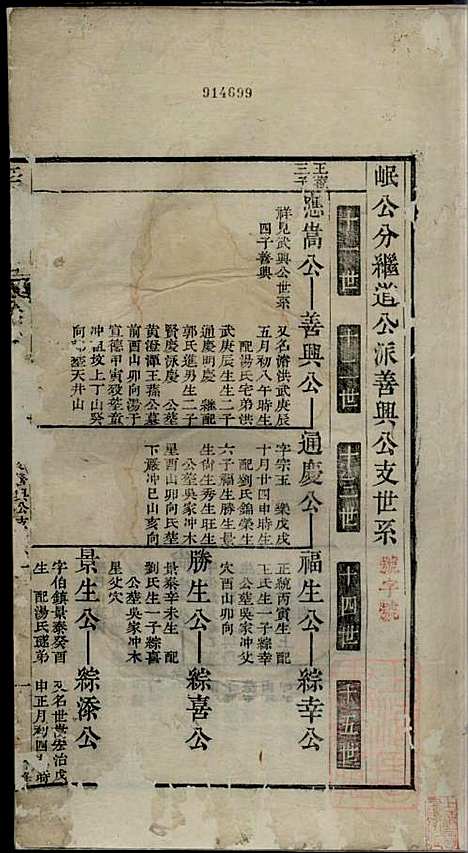 914699
岷公分繼道公派善興公支世系
十一世
十二世
十三世
十四世
十五世
應嵩公
善興公
通慶公
福生公
綜幸公
祥見武興公世系
四子善興
又名濬洪武庚辰
五月初八午時生
配湯氏宅弟洪
武庚辰生生二子
通慶明慶 繼配
郭氏進男生二子
賢慶泳慶 公葬
黄澄潭王蓀公墓
前酉山卯向湯于
宣德甲寅歿葬
冲徂坟上丁山癸
向
天井山
字宗玉
十月廿四申時生
配劉氏錦榮生
六子福生勝生景
生尚生秀生旺生
公葬吳家冲木
星酉山卯向氏葬
下嚴冲巳山亥向
正統丙寅生 配
王氏生一子綜幸
公葬吳家冲父
穴酉山卯向
勝生公
綜喜公
景泰辛未生 配
劉氏生一子綜喜
公葬吳家冲木
星父穴
景生公
綜添公
字伯鎮景泰癸酉
生 配湯氏
弟
又名世
宏治戊
申正月初四
時